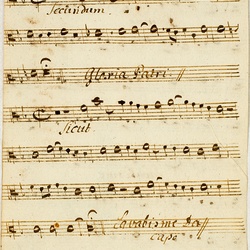 Secundum
Gloria Patri //
Sicut
Lavabis me Da
capo